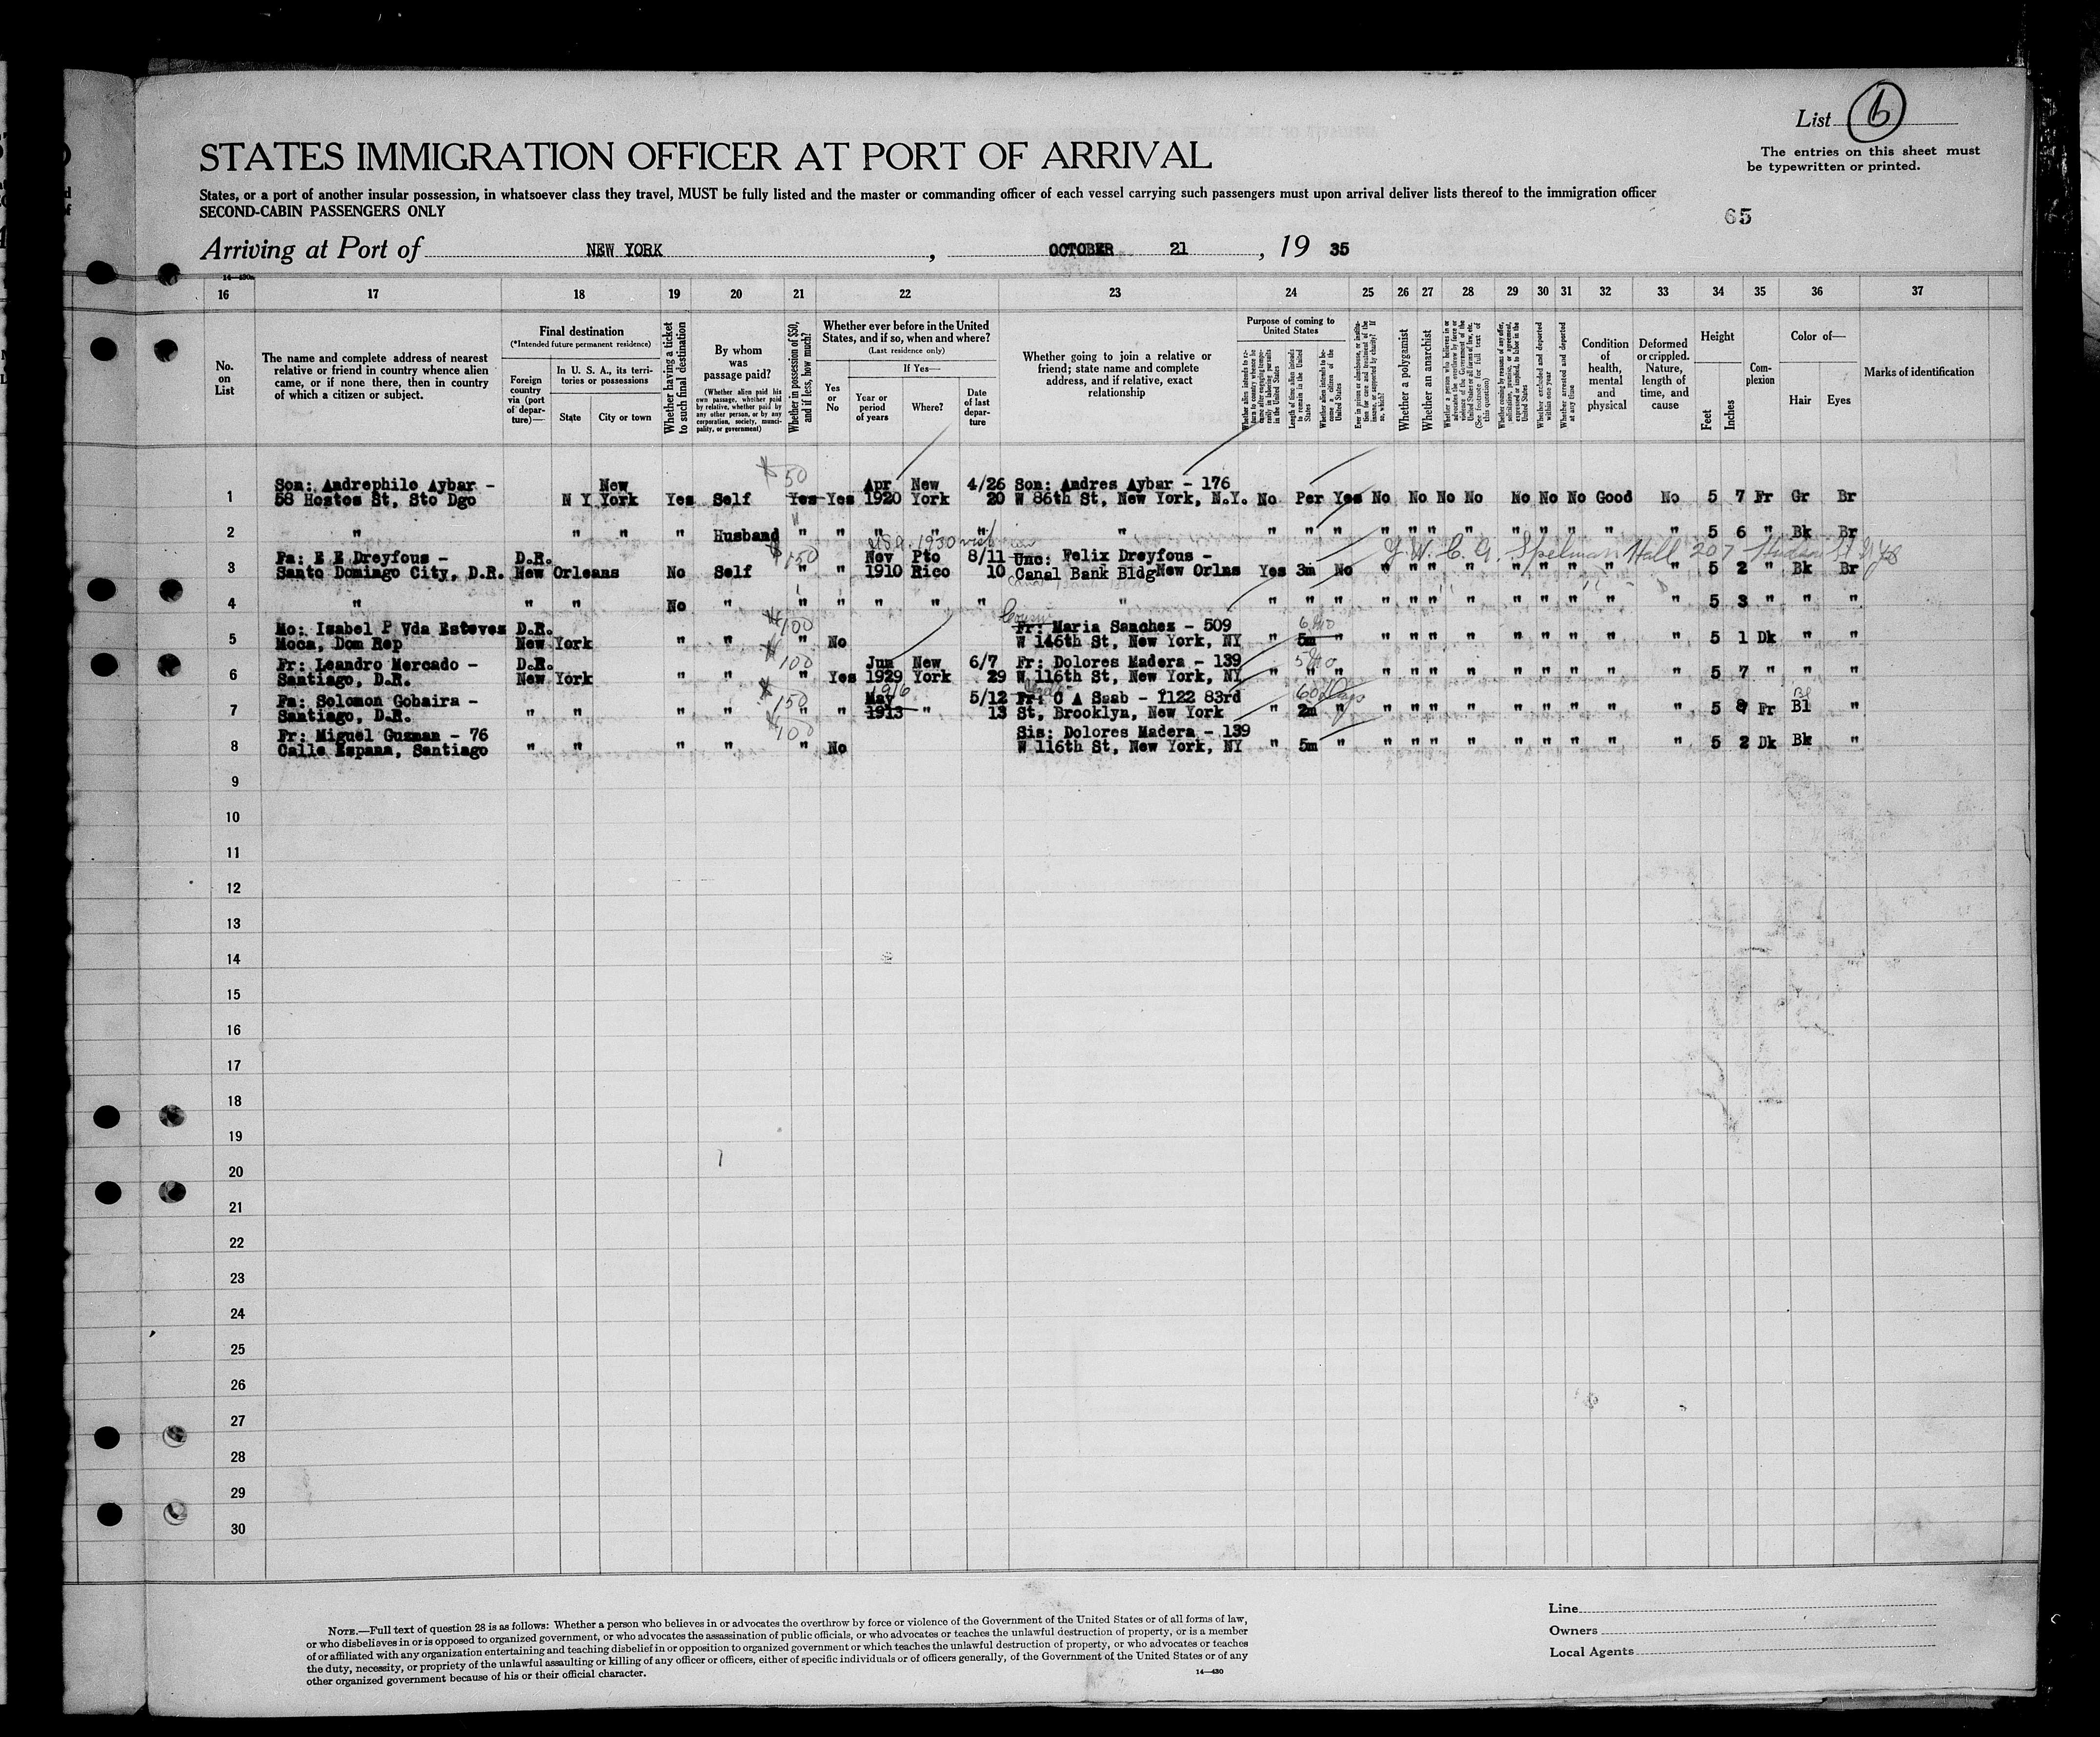 List 6
The entries on this sheet must
be typewritten or printed.
STATES IMMIGRATION OFFICER AT PORT OF ARRIVAL
States, or a port of another insular possession, in whatsoever class they travel, MUST be fully listed and the master or commanding officer of each vessel carrying such passengers must upon arrival deliver lists thereof to the immigration officer
SECOND-CABIN PASSENGERS ONLY
65
Arriving at Port of NEW YORK, OCTOBER 21, 19 35
14—430a
16 17 18 19 20 21 22 23 24 25 26 27 28 29 30 31 32 33 34 35 36 37
No. on List
The name and complete address of nearest relative or friend in country whence alien came, or if none there, then in country of which a citizen or subject.
Final destination
(*Intended future permanent residence)
Foreign country via (port of departure)—
In U. S. A., its territories or possessions
State
City or town
Whether having a ticket to such final destination
By whom was passage paid?
(Whether alien paid his own passage, whether paid by relative, whether paid by any other person, or by any corporation, society, municipality, or government)
Whether in possession of $50, and if less, how much?
Whether ever before in the United States, and if so, when and where?
(Last residence only)
Yes or No
If Yes—
Year or period of years
Where?
Date of last departure
Whether going to join a relative or friend; state name and complete address, and if relative, exact relationship
Purpose of coming to United States
Length of time alien intends to remain in the United States
Whether alien intends to become a citizen of the United States
Whether a polygamist
Whether an anarchist
Whether excluded and deported within one year
Whether arrested and deported at any time
Condition of health, mental and physical
Deformed or crippled. Nature, length of time, and cause
Height
Feet
Inches
Complexion
Color of—
Hair
Eyes
Marks of identification
$50
Son: Andrephilo Aybar - New Apr New 4/26 Son: Andres Aybar - 176
1 58 Hostos St, Sto Dgo N Y York Yes Self Yes Yes 1920 York 20 W 86th St, New York, N.Y. No Per Yes No No No No No No No Good No 5 7 Fr Gr Br
2 " " " " Husband " " " " " " " " " " " " " " " " " " " 5 6 " Bk Br
USA 1930 visit
Y. W. C. A. Spelman Hall 207 Hudson St
Fa: E E Dreyfous - D.R. $150 Nov Pto 8/11 Unc: Felix Dreyfous -
3 Santo Domingo City, D.R. New Orleans No Self " " 1910 Rico 10 Canal Bank Bldg New Orlns Yes 3m No " " " " " " " " " 5 2 " Bk Br
4 " " " No " " " " " " " " " " " " " " " " " " " 5 3 " " "
Mo: Isabel P Vda Esteves D.R. $100 Cousin Fr: Maria Sanchez - 509 6 mo
5 Moca, Dom Rep New York " " " No W 146th St, New York, NY " 5m " " " " " " " " " " 5 1 Dk " "
Fr: Leandro Mercado - D.R. $100 Jun New 6/7 Fr: Dolores Madera - 139 5 mo
6 Santiago, D.R. New York " " " Yes 1929 York 29 W 116th St, New York, NY " " " " " " " " " " " " 5 7 " " "
Fa: Solomon Gobaira - $150 1916 May 5/12 Fr: C A Saab - 1122 83rd 60 days Bl
7 Santiago, D.R. " " " " " " 1913 " 13 St, Brooklyn, New York " 2m " " " " " " " " " " 5 8 Fr Bl "
Fr: Miguel Guzman - 76 $100 Sis: Dolores Madera - 139
8 Calle Espana, Santiago " " " " " No W 116th St, New York, NY " 5m " " " " " " " " " " 5 2 Dk Bk "
9
10
11
12
13
14
15
16
17
18
19
20
21
22
23
24
25
26
27
28
29
30
NOTE.—Full text of question 28 is as follows: Whether a person who believes in or advocates the overthrow by force or violence of the Government of the United States or of all forms of law,
or who disbelieves in or is opposed to organized government, or who advocates the assassination of public officials, or who advocates or teaches the unlawful destruction of property, or is a member
of or affiliated with any organization entertaining and teaching disbelief in or opposition to organized government or which teaches the unlawful destruction of property, or who advocates or teaches
the duty, necessity, or propriety of the unlawful assaulting or killing of any officer or officers, either of specific individuals or of officers generally, of the Government of the United States or of any
other organized government because of his or their official character.
14—430
Line
Owners
Local Agents